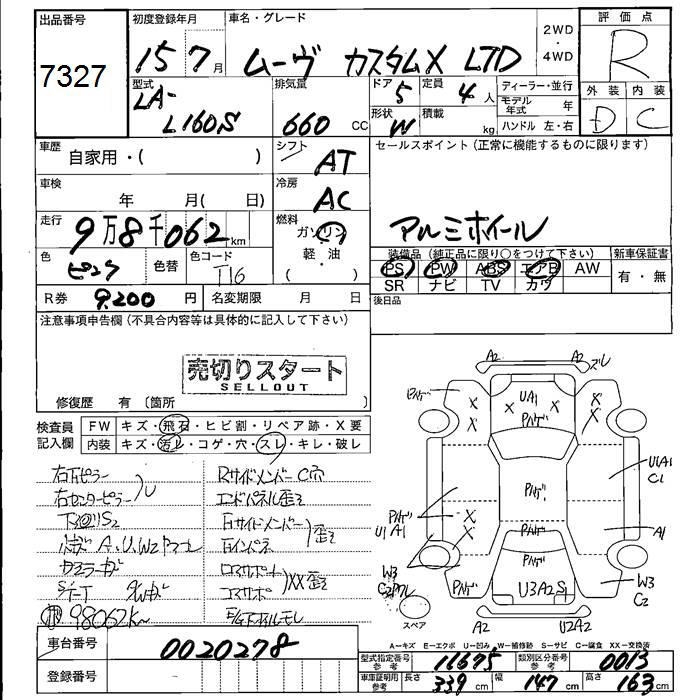 出品番号
7327
初度登録年月
15 7月
車名・グレード
ムーヴ カスタムX LTD
2WD
4WD
評価点
R
外装 内装
D C
型式
LA-
L160S
排気量
660 CC
ドア 5
定員 4人
形状 W
積載 kg
ディーラー・並行
モデル年式 年
ハンドル 左・右
車歴
自家用・( )
シフト
AT
セールスポイント (正常に機能するものに限ります)
アルミホイール
車検
年 月( 日)
冷房
AC
走行
9万8千062km
燃料
ガソリン
軽・油
・( )
色
ピンク
色替
色コード
T16
装備品 (純正品に限り○をつけて下さい)
PS PW ABS エアB AW
SR ナビ TV カワ
新車保証書
有・無
R券 9,200円
名変期限 月 日
後日品
注意事項申告欄 (不具合内容等は具体的に記入して下さい)
売切りスタート
SELLOUT
修復歴 有 〔箇所 〕
検査員
記入欄
FW キズ・飛石・ヒビ割・リペア跡・X要
内装 キズ・汚レ・コゲ・穴・スレ・キレ・破レ
右Fピラー
右センターピラー
下回りS2
A、U、W2
98062K
Rサイドメンバー C穴
エンドパネル歪ミ
Fサイドメンバー
Fインパネ
歪ミ
コアサポート
XX歪ミ
A2 A2 ズレ
UA1
X X X X X X
パハゲ
パハゲ
パハゲ
U1A1
C1
パハゲ
U1 A1
A1
パハゲ
W3
パハゲ
U3A2S1
W3
C2
スペア
A2 U2A2
車台番号
0020278
登録番号
A=キズ E=エクボ U=凹み W=補修跡 S=サビ C=腐食 XX=交換済
型式指定番号
参考
11675
類別区分番号
参考
0013
車庫証明用
参考
長さ 339cm
幅 147cm
高さ 163cm